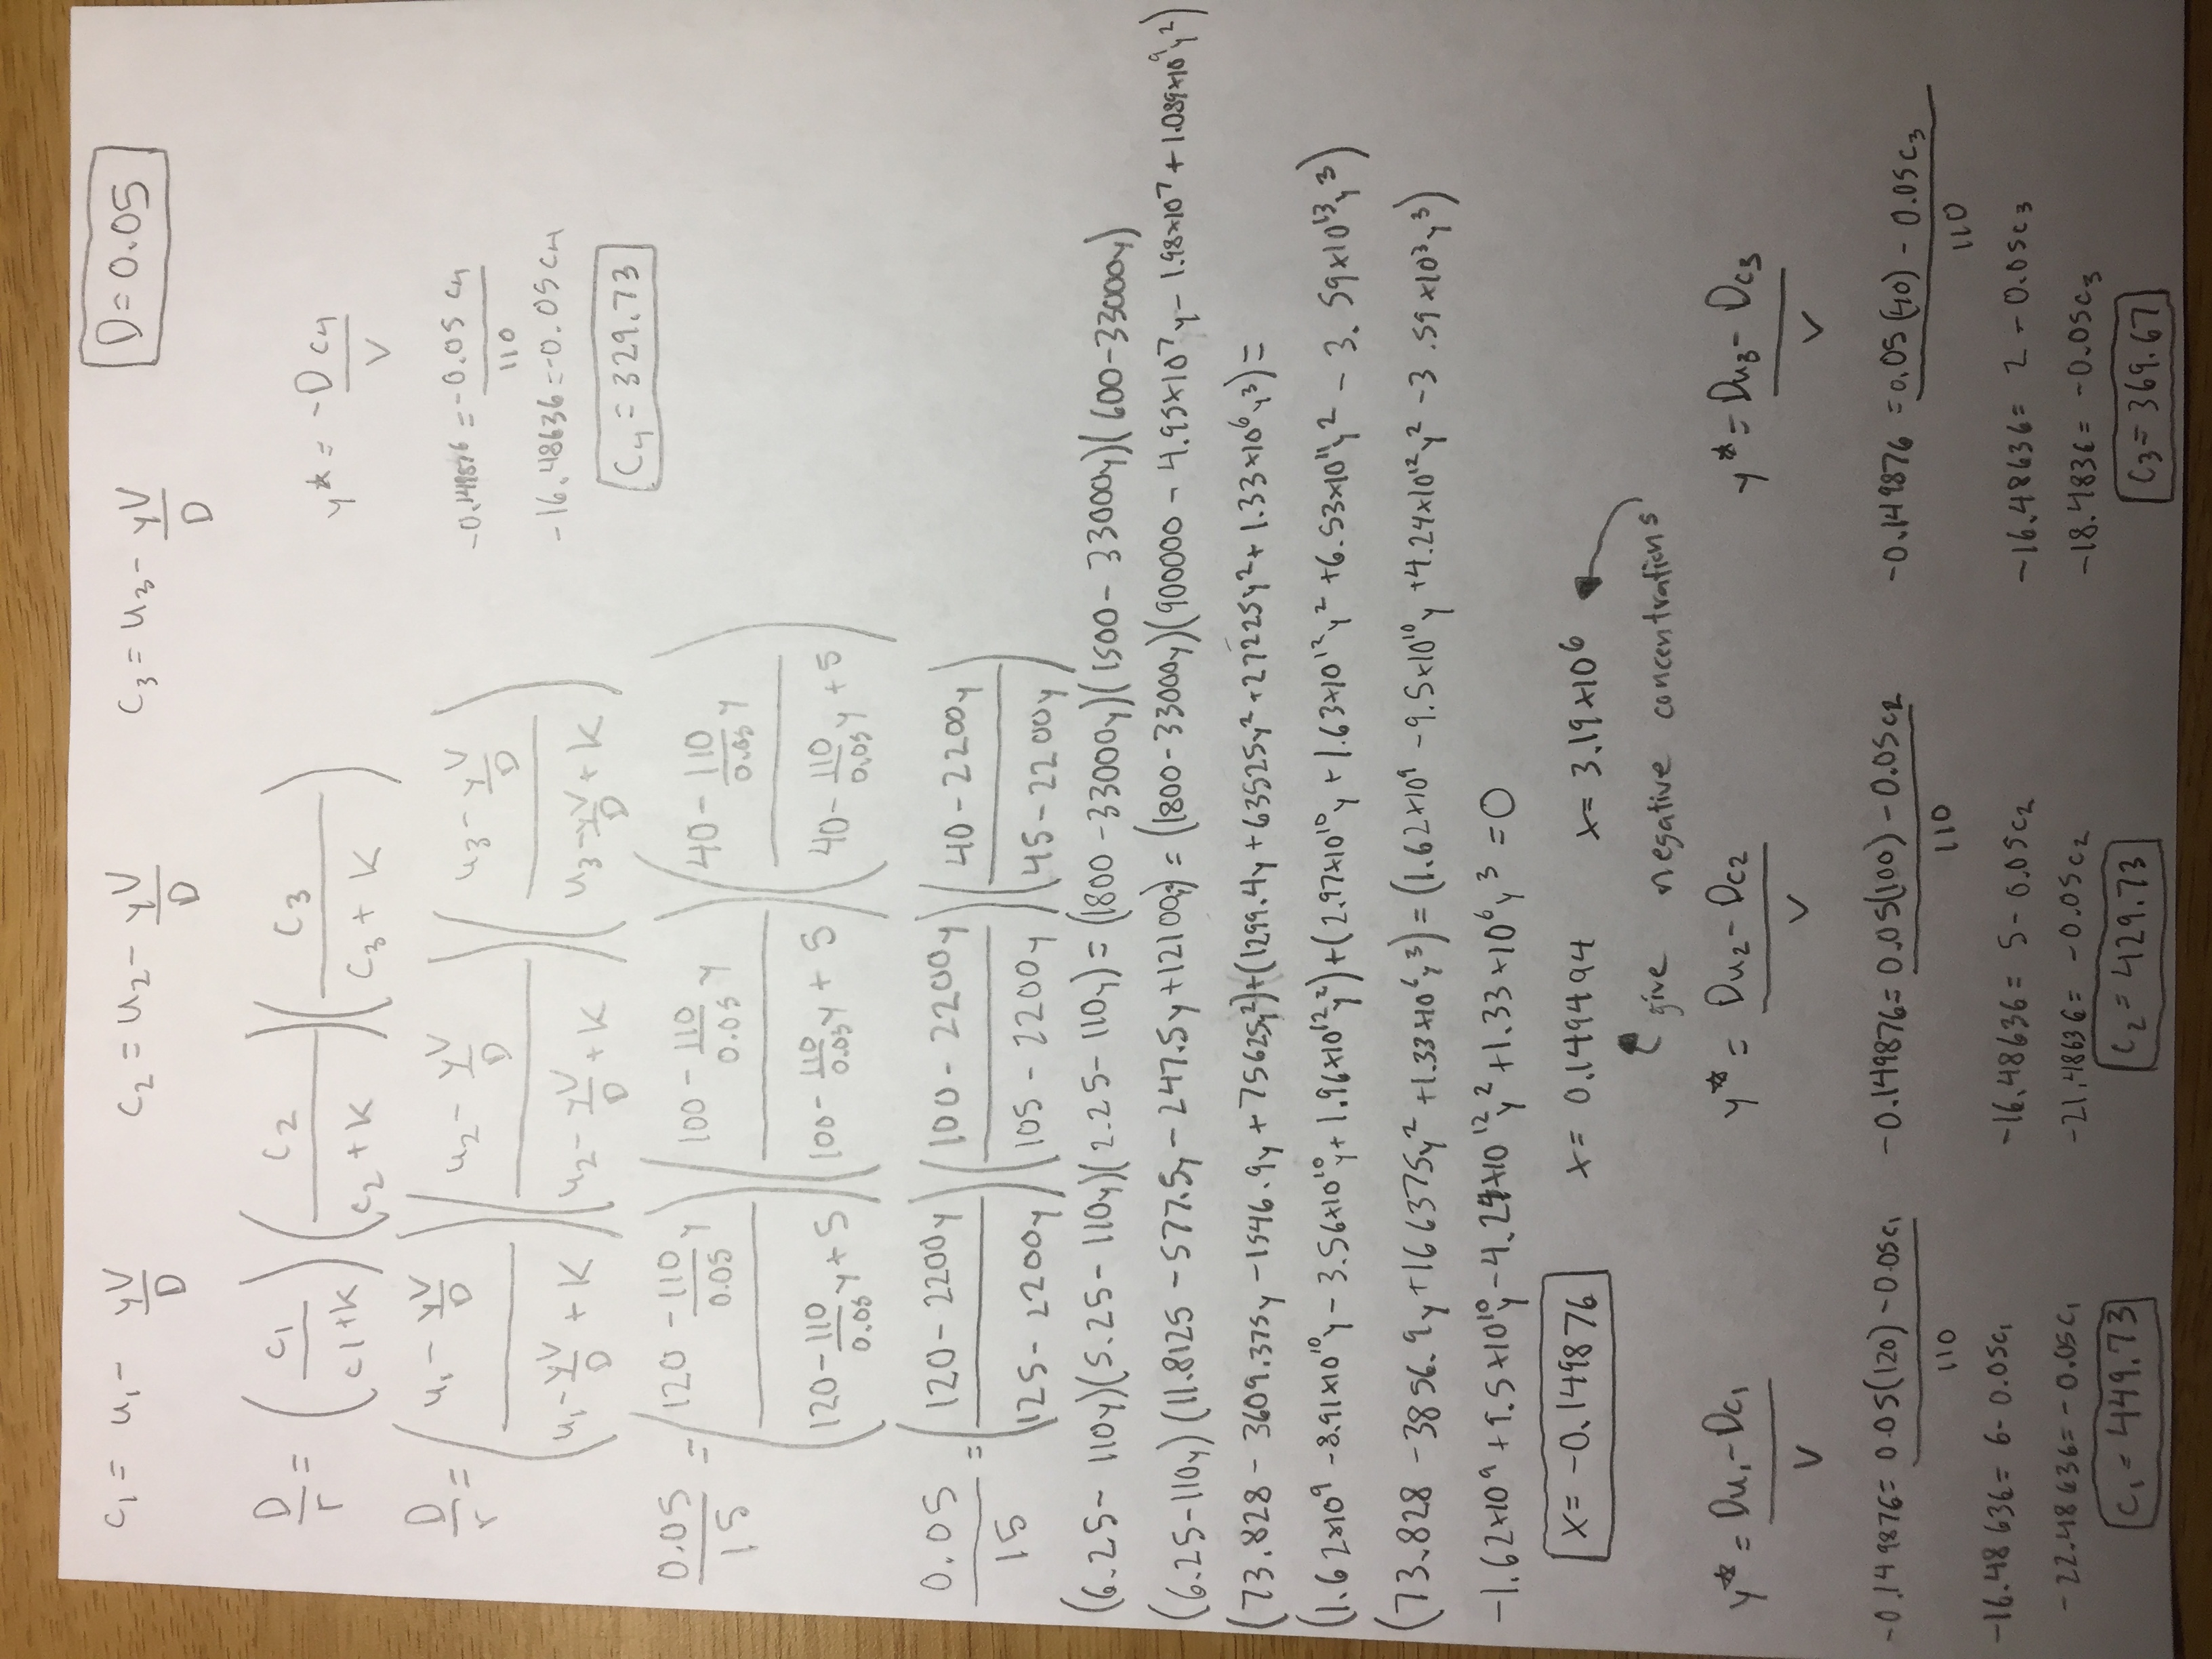 D = 0.05
c₁ = u₁ - yV/D c₂ = u₂ - yV/D c₃ = u₃ - yV/D
D/r = (c₁/(c1+K))(c₂/(c₂+K))(c₃/(c₃+K))
y* = -Dc₄/V
D/r = ((u₁ - yV/D)/(u₁ - yV/D + K))((u₂ - yV/D)/(u₂ - yV/D + K))((u₃ - yV/D)/(u₃ - yV/D + K))
-0.149876 = -0.05 c₄/110
-16.48636 = -0.05 c₄
C₄ = 329.73
0.05/15 = ((120 - 110/0.05 y)/(120 - 110/0.05 y + 5))((100 - 110/0.05 y)/(100 - 110/0.05 y + 5))((40 - 110/0.05 y)/(40 - 110/0.05 y + 5))
0.05/15 = ((120 - 2200y)/(125 - 2200y))((100 - 2200y)/(105 - 2200y))((40 - 2200y)/(45 - 2200y))
(6.25 - 110y)(5.25 - 110y)(2.25 - 110y) = (1800 - 33000y)(1500 - 33000y)(600 - 33000y)
(6.25 - 110y)(11.8125 - 577.5y - 247.5y + 12100y) = (1800 - 33000y)(900000 - 4.95x10⁷y - 1.98x10⁷ + 1.089x10⁹y²)
(73.828 - 3609.375y - 1546.9y + 75625y²) + (1299.4y + 63525y² + 27225y² + 1.33x10⁶y³) =
(1.62x10⁹ - 8.91x10¹⁰y - 3.56x10¹⁰y + 1.96x10¹²y²) + (2.97x10¹⁰y + 1.63x10¹²y² + 6.53x10¹¹y² - 3.59x10¹³y³)
(73.828 - 3856.9y + 166375y² + 1.33x10⁶y³) = (1.62x10⁹ - 9.5x10¹⁰y + 4.24x10¹²y² - 3.59x10³y³)
-1.62x10⁹ + 9.5x10¹⁰y - 4.24x10¹²y² + 1.33x10⁶y³ = 0
x = -0.149876 x = 0.149494 x = 3.19x10⁶
give negative concentrations
y* = Du₁ - Dc₁/V y* = Du₂ - Dc₂/V y* = Du₃ - Dc₃/V
-0.149876 = 0.05(120) - 0.05c₁/110 -0.149876 = 0.05(100) - 0.05c₂/110 -0.149876 = 0.05(40) - 0.05c₃/110
-16.48636 = 6 - 0.05c₁ -16.48636 = 5 - 0.05c₂ -16.48636 = 2 - 0.05c₃
-22.48636 = -0.05c₁ -21.48636 = -0.05c₂ -18.4836 = -0.05c₃
C₁ = 449.73 C₂ = 429.73 C₃ = 369.67